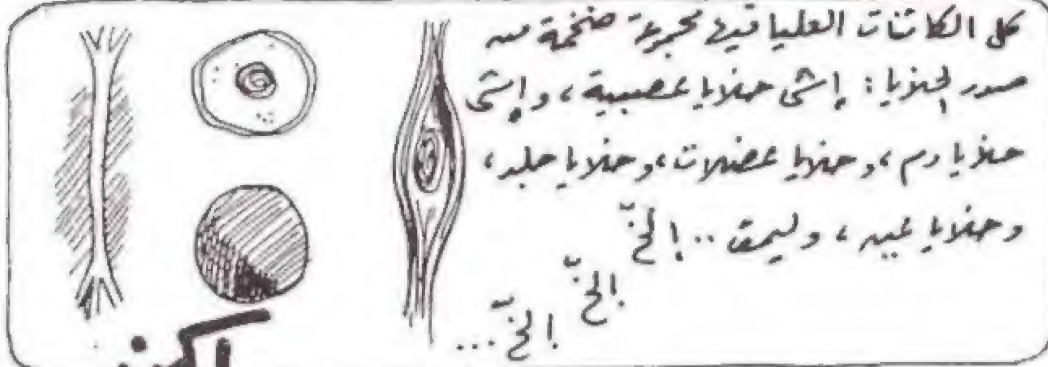 كل الكائنات العليا فيها مجموعة ضخمة من
صور الخلايا: إشى خلايا عصبية، وإشى
خلايا دم، وخلايا عضلات، وخلايا جلد،
وخلايا عين، وليمف .. إلخّ
إلخّ
إلخّ...